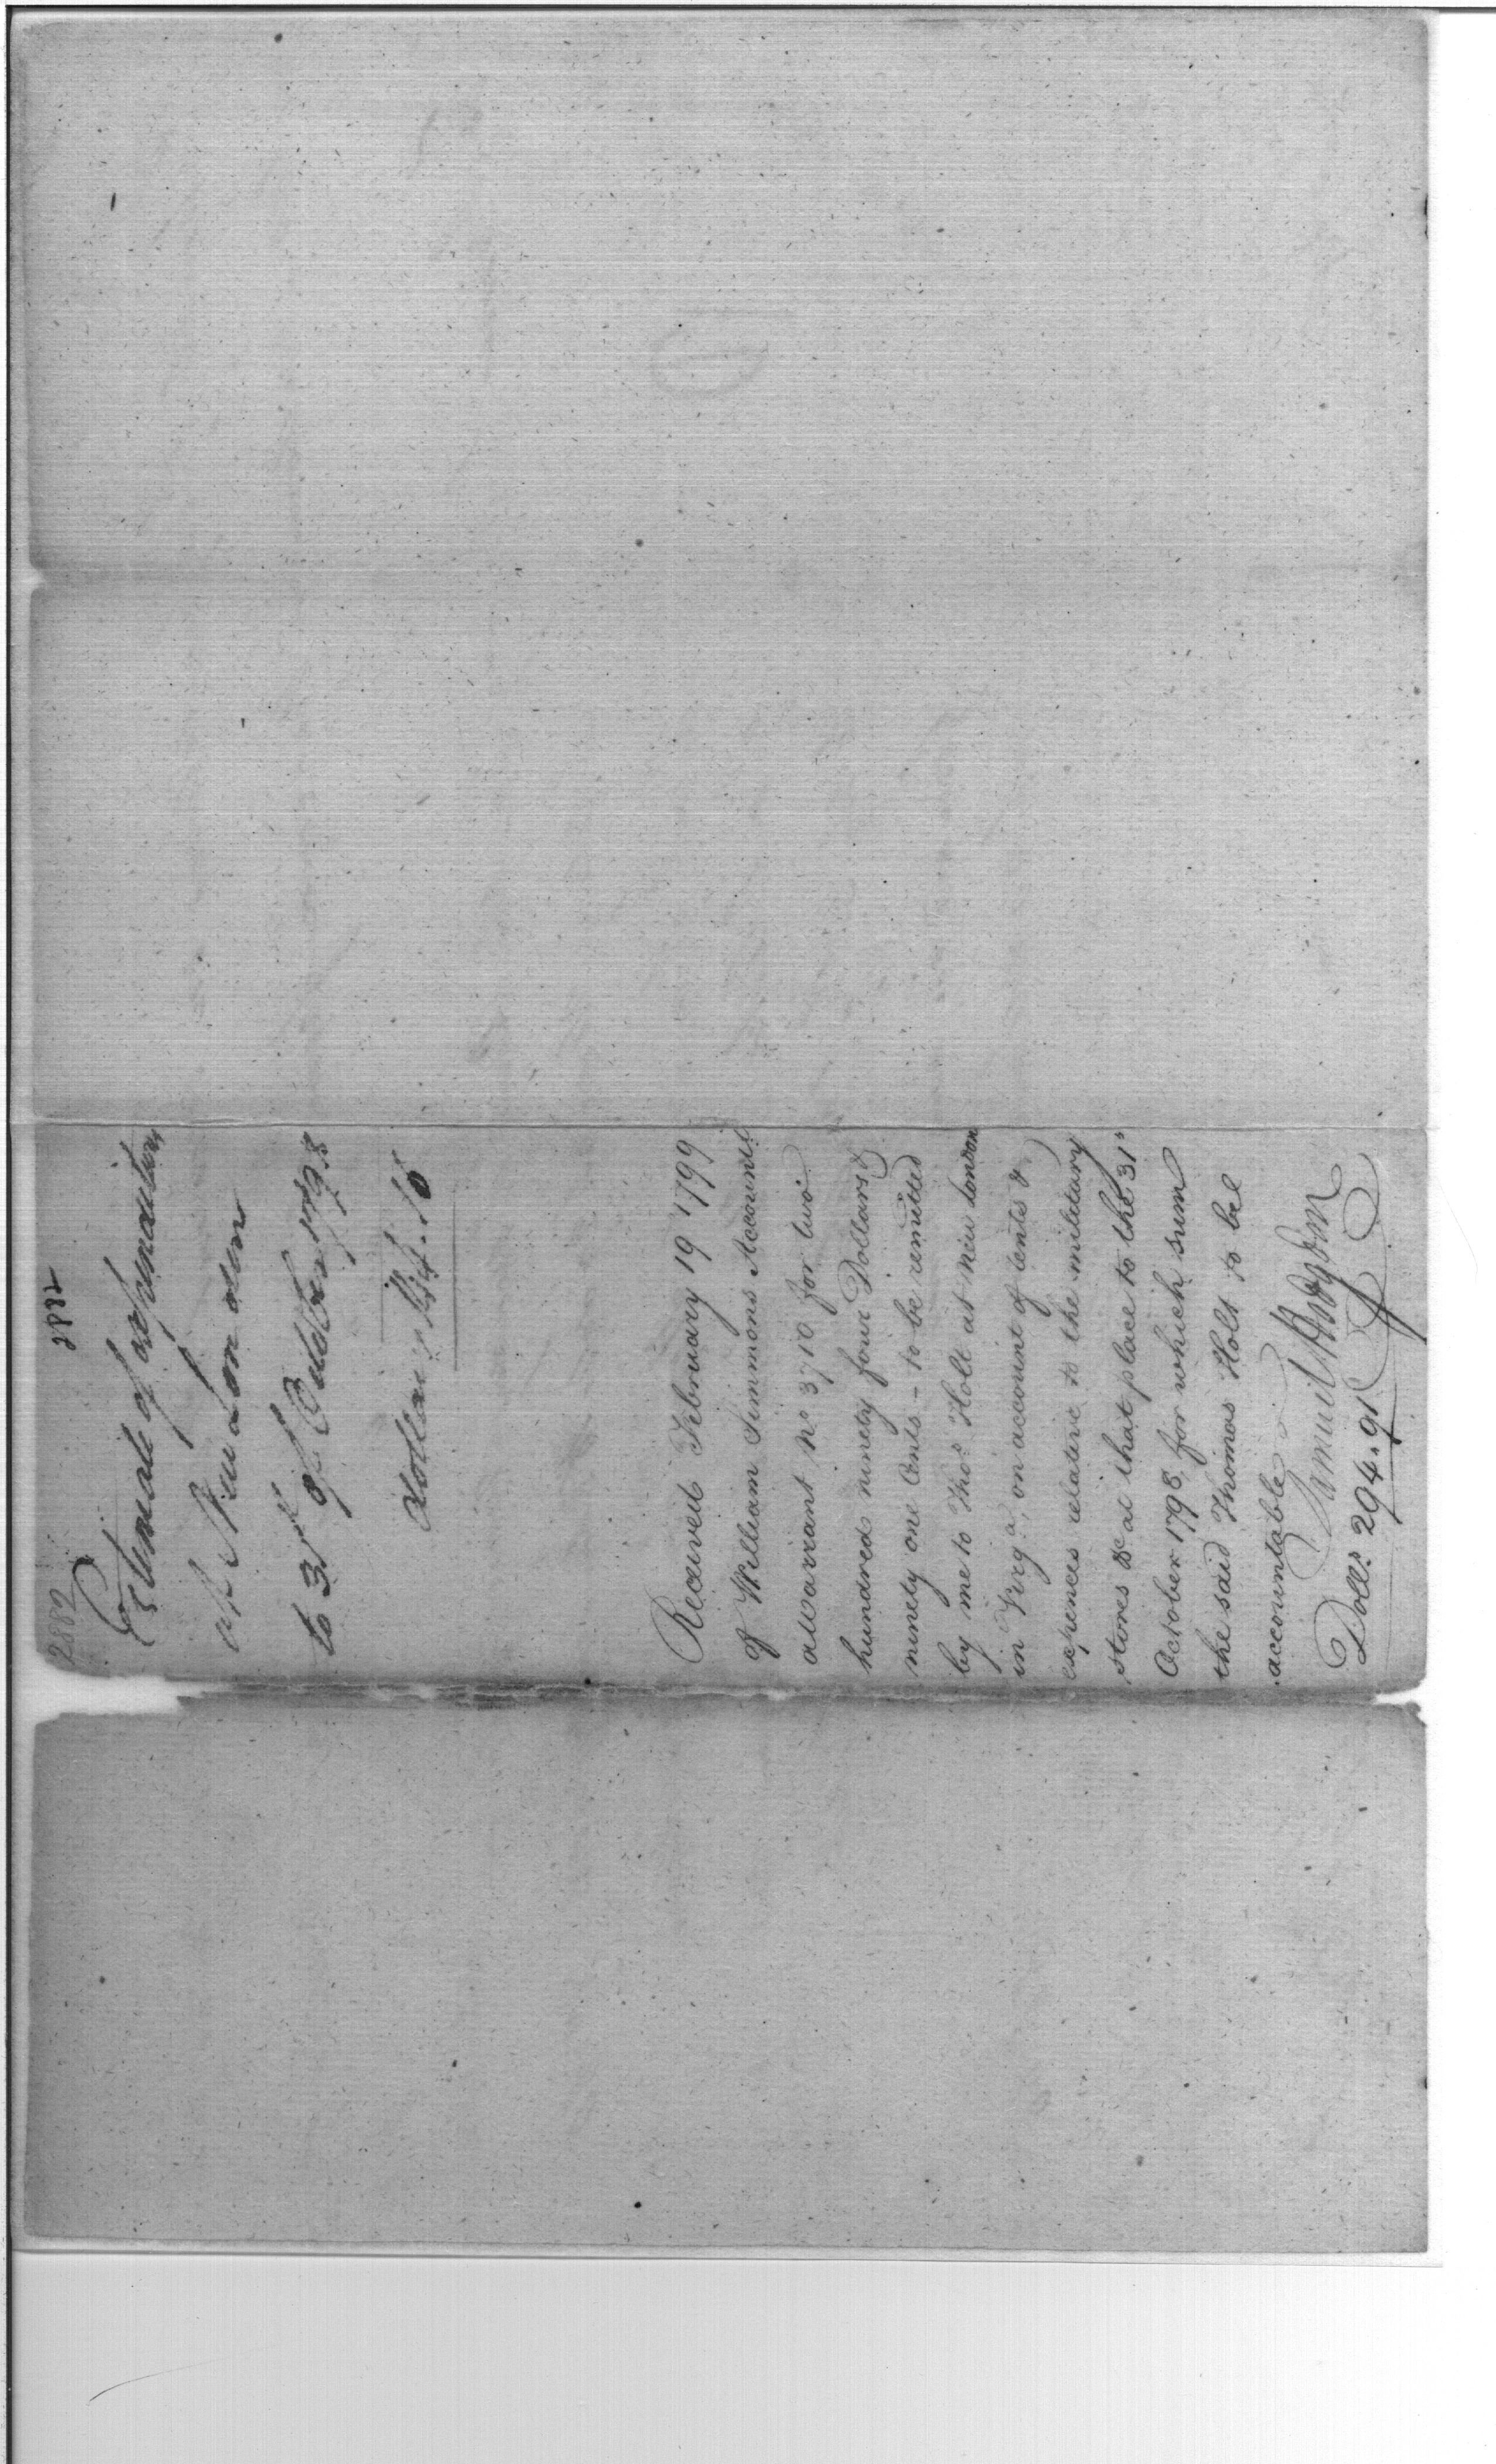 2882
2882
Estimate of expenditures
at New London
to 31st of October 1798
Dollars
Received February 19 1799
of William Simmons Account.t
a warrant No 3710 for two
hundred ninety four Dollars &
ninety one Cents - to be remitted
by me to Thos. Holt at New London
in Virga., on account of rents &
expences relative to the military
stores &c at that place to the 31st
October 1798, for which sum
the said Thomas Holt to be
accountable
Samuel Hodgdon
Dolls. 294.91